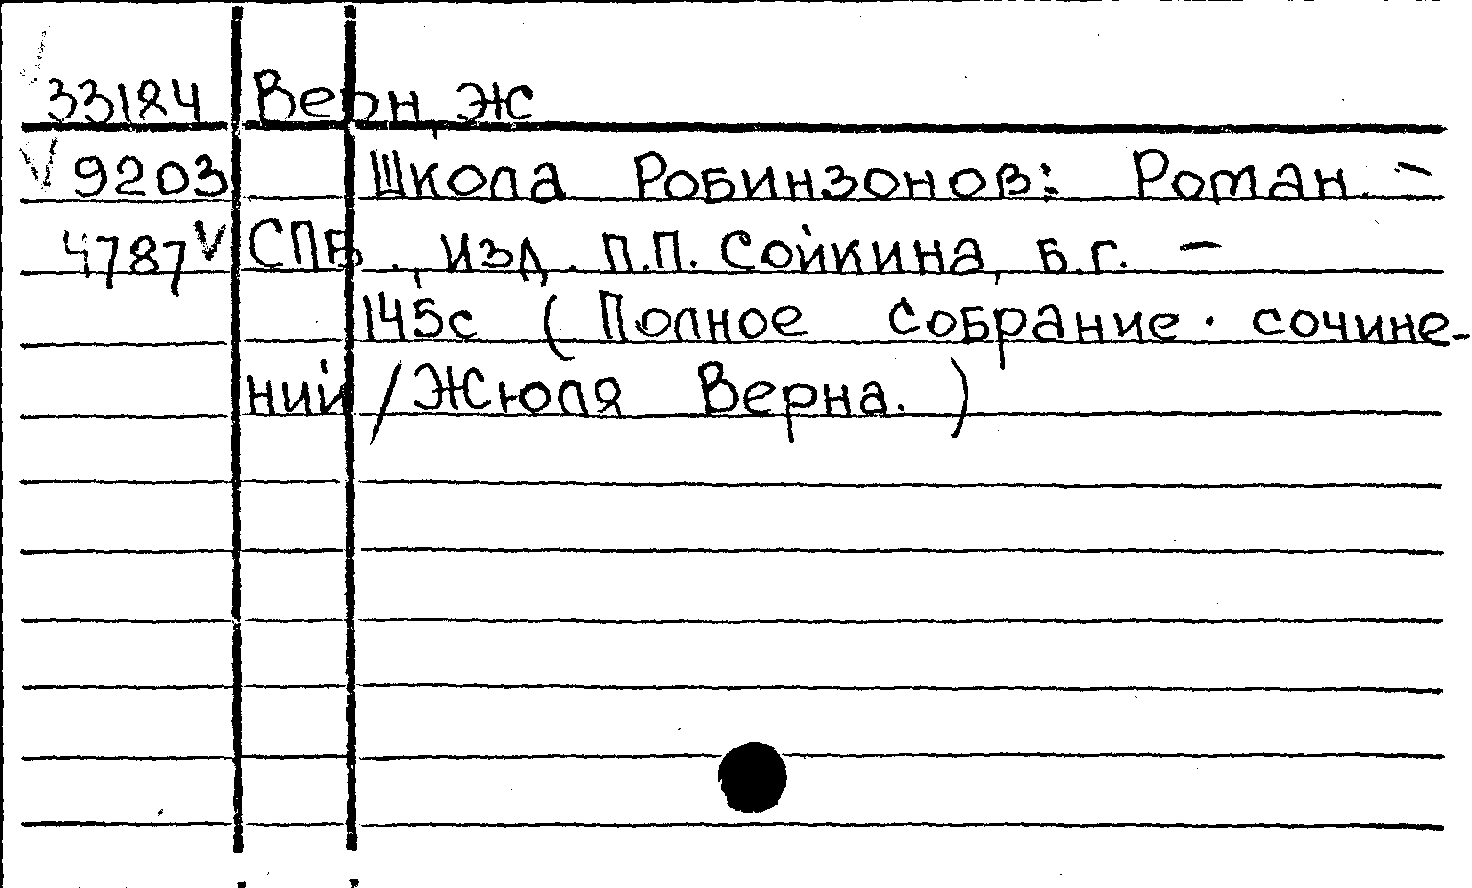 33184 Верн, Ж
9203 Школа Робинзонов: Роман. –
4787 СПБ., изд. П.П. Сойкина, б.г. –
145с (Полное собрание сочине-
ний / Жюля Верна.)